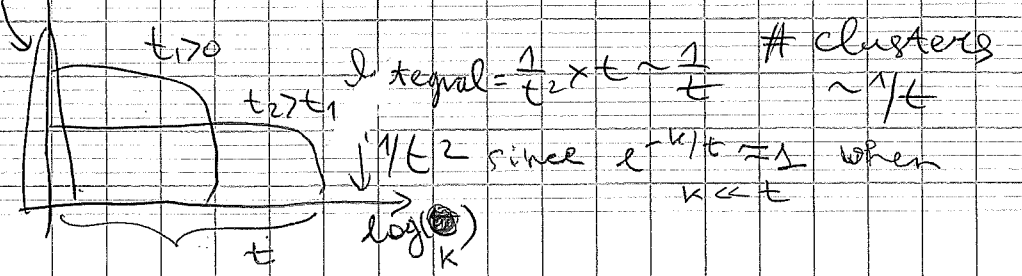 t₁>0
Integral = 1/t² × t ~ 1/t
# clusters
~ 1/t
t₂>t₁
↓ 1/t² since e^{-k/t} ≈ 1 when
k << t
t
log(
k
)